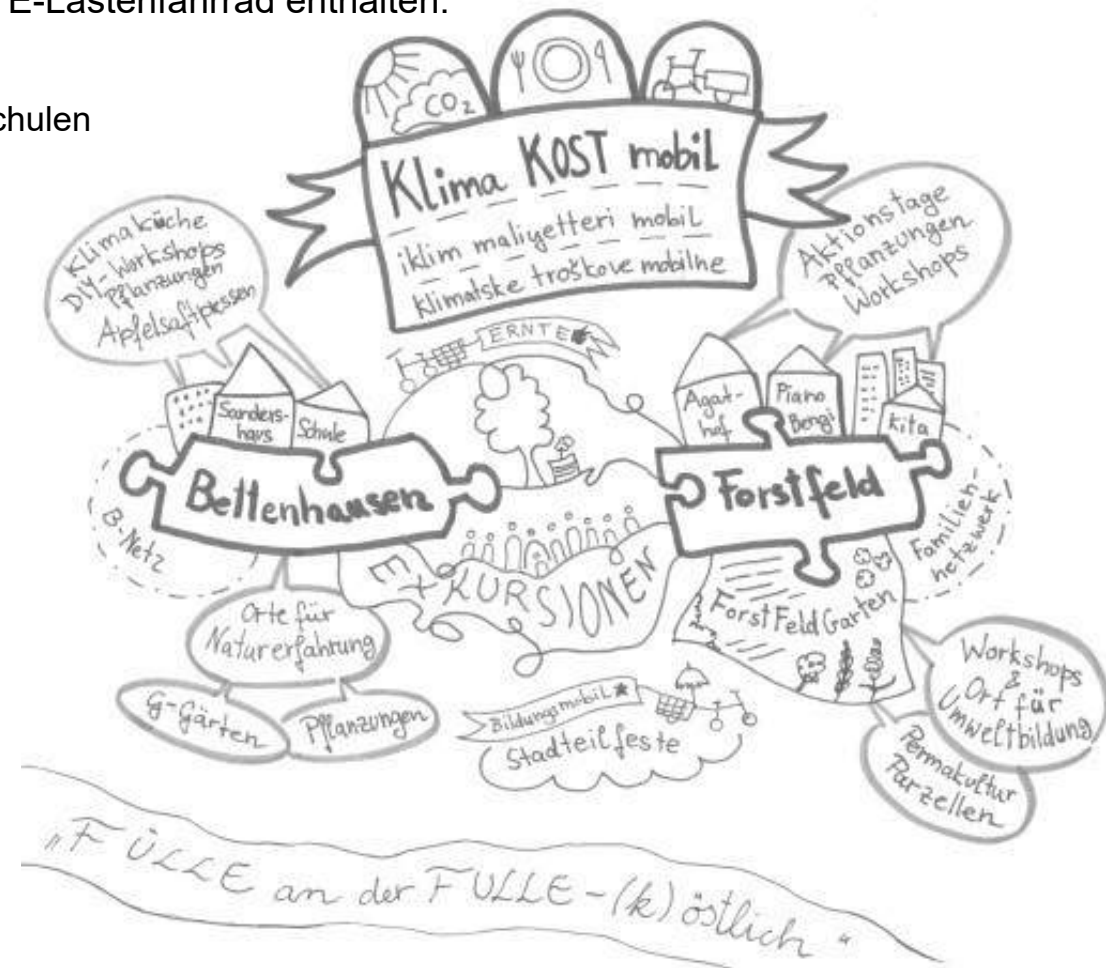 E-Lastenfahrrad enthalten.
chulen
CO2
Klima KOST mobil
iklim maliyetteri mobil
klimatske troškove mobilne
Klimaküche
DIY-Workshops
Pflanzungen
Apfelsaftpressen
Aktionstage
Pflanzungen
Workshops
ERNTE
Sanders-
haus
Schule
Agat-
hof
Piano
Bengi
Kita
Bettenhausen
Forstfeld
B-Netz
Familien-
netzwerk
EXKURSIONEN
ForstFeldGarten
Orte für
Naturerfahrung
G-Gärten
Pflanzungen
Bildungsmobil
Stadtteilfeste
Workshops
&
Ort für
Umweltbildung
Permakultur
Parzellen
„FÜLLE an der FULLE-(k)östlich“